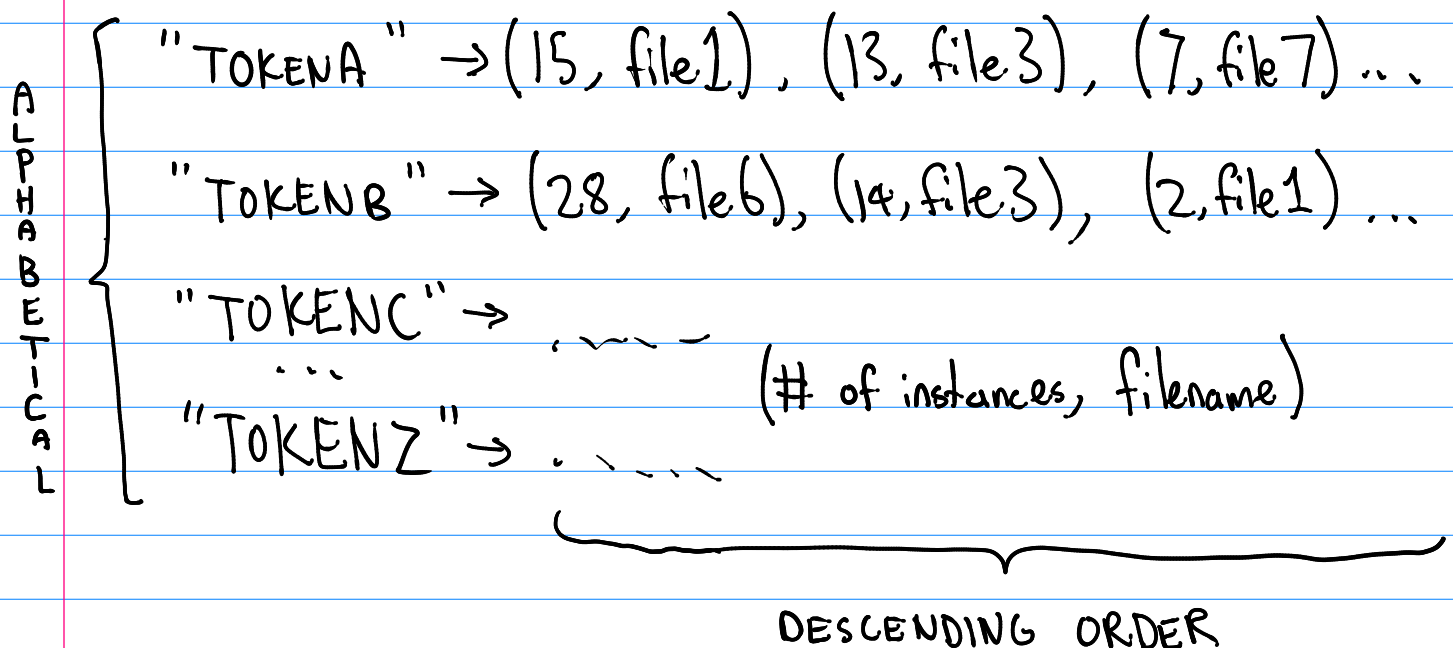 ALPHABETICAL
"TOKENA" → (15, file1), (13, file3), (7, file7)...
"TOKENB" → (28, file6), (14, file3), (2, file1)...
"TOKENC" →
...
(# of instances, filename)
"TOKENZ" →
DESCENDING ORDER